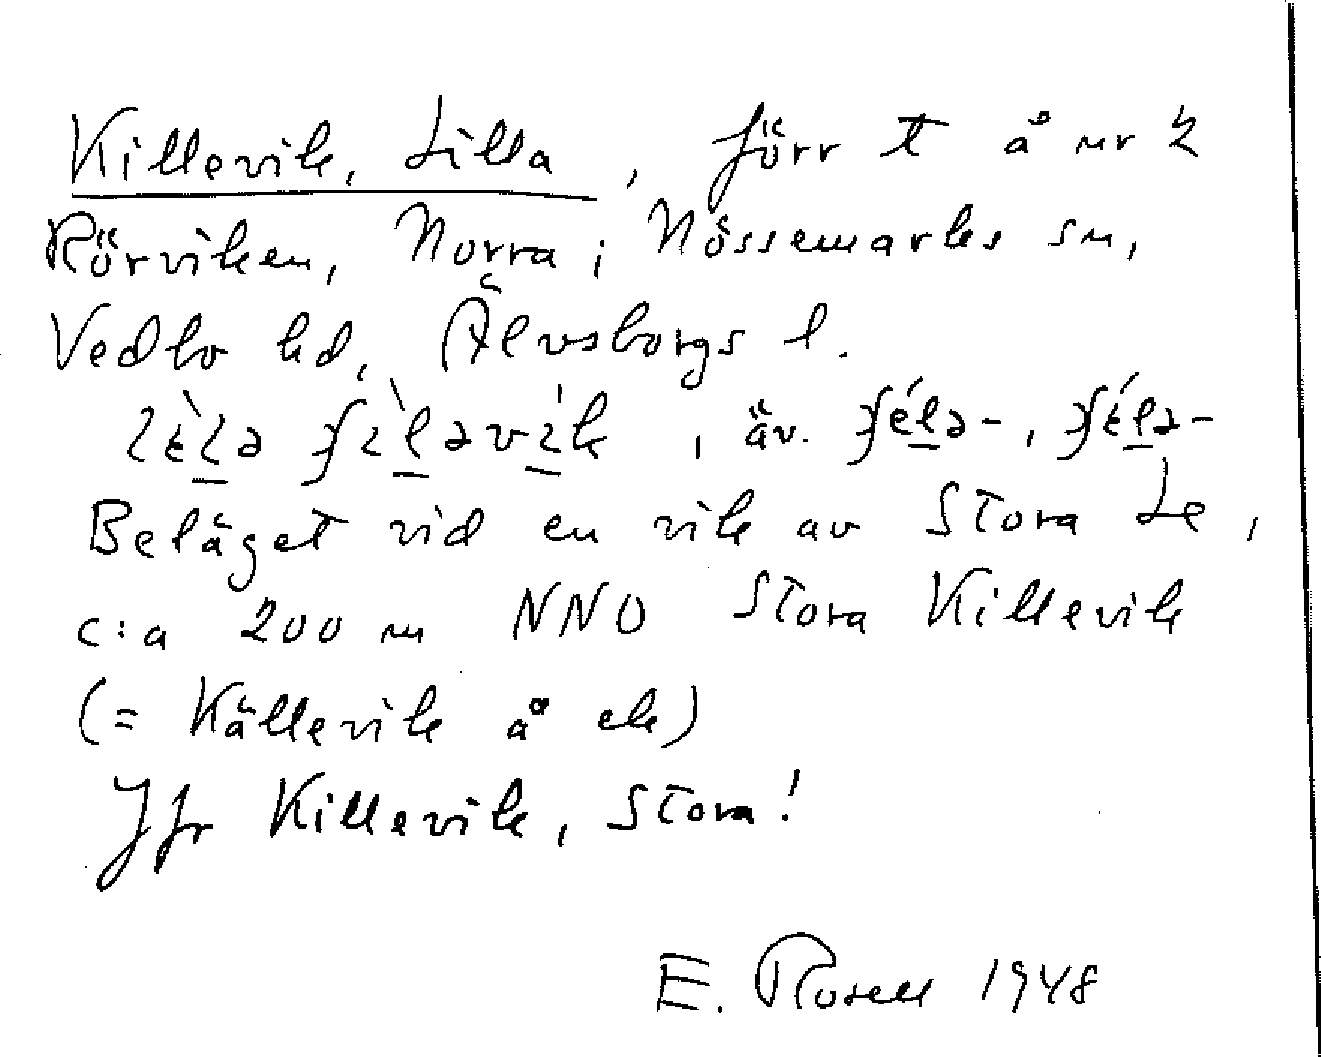 Killevik, Lilla, förr t å nr 2
Rörviken, Norra; Nössemarks sn,
Vedbo hd, Älvsborgs l.
, äv.
Beläget vid en vik av Stora Le,
c:a 200 m NNO Stora Killevik
(= Källevik å ek)
Jfr Killevik, Stora!
E. Rosell 1948